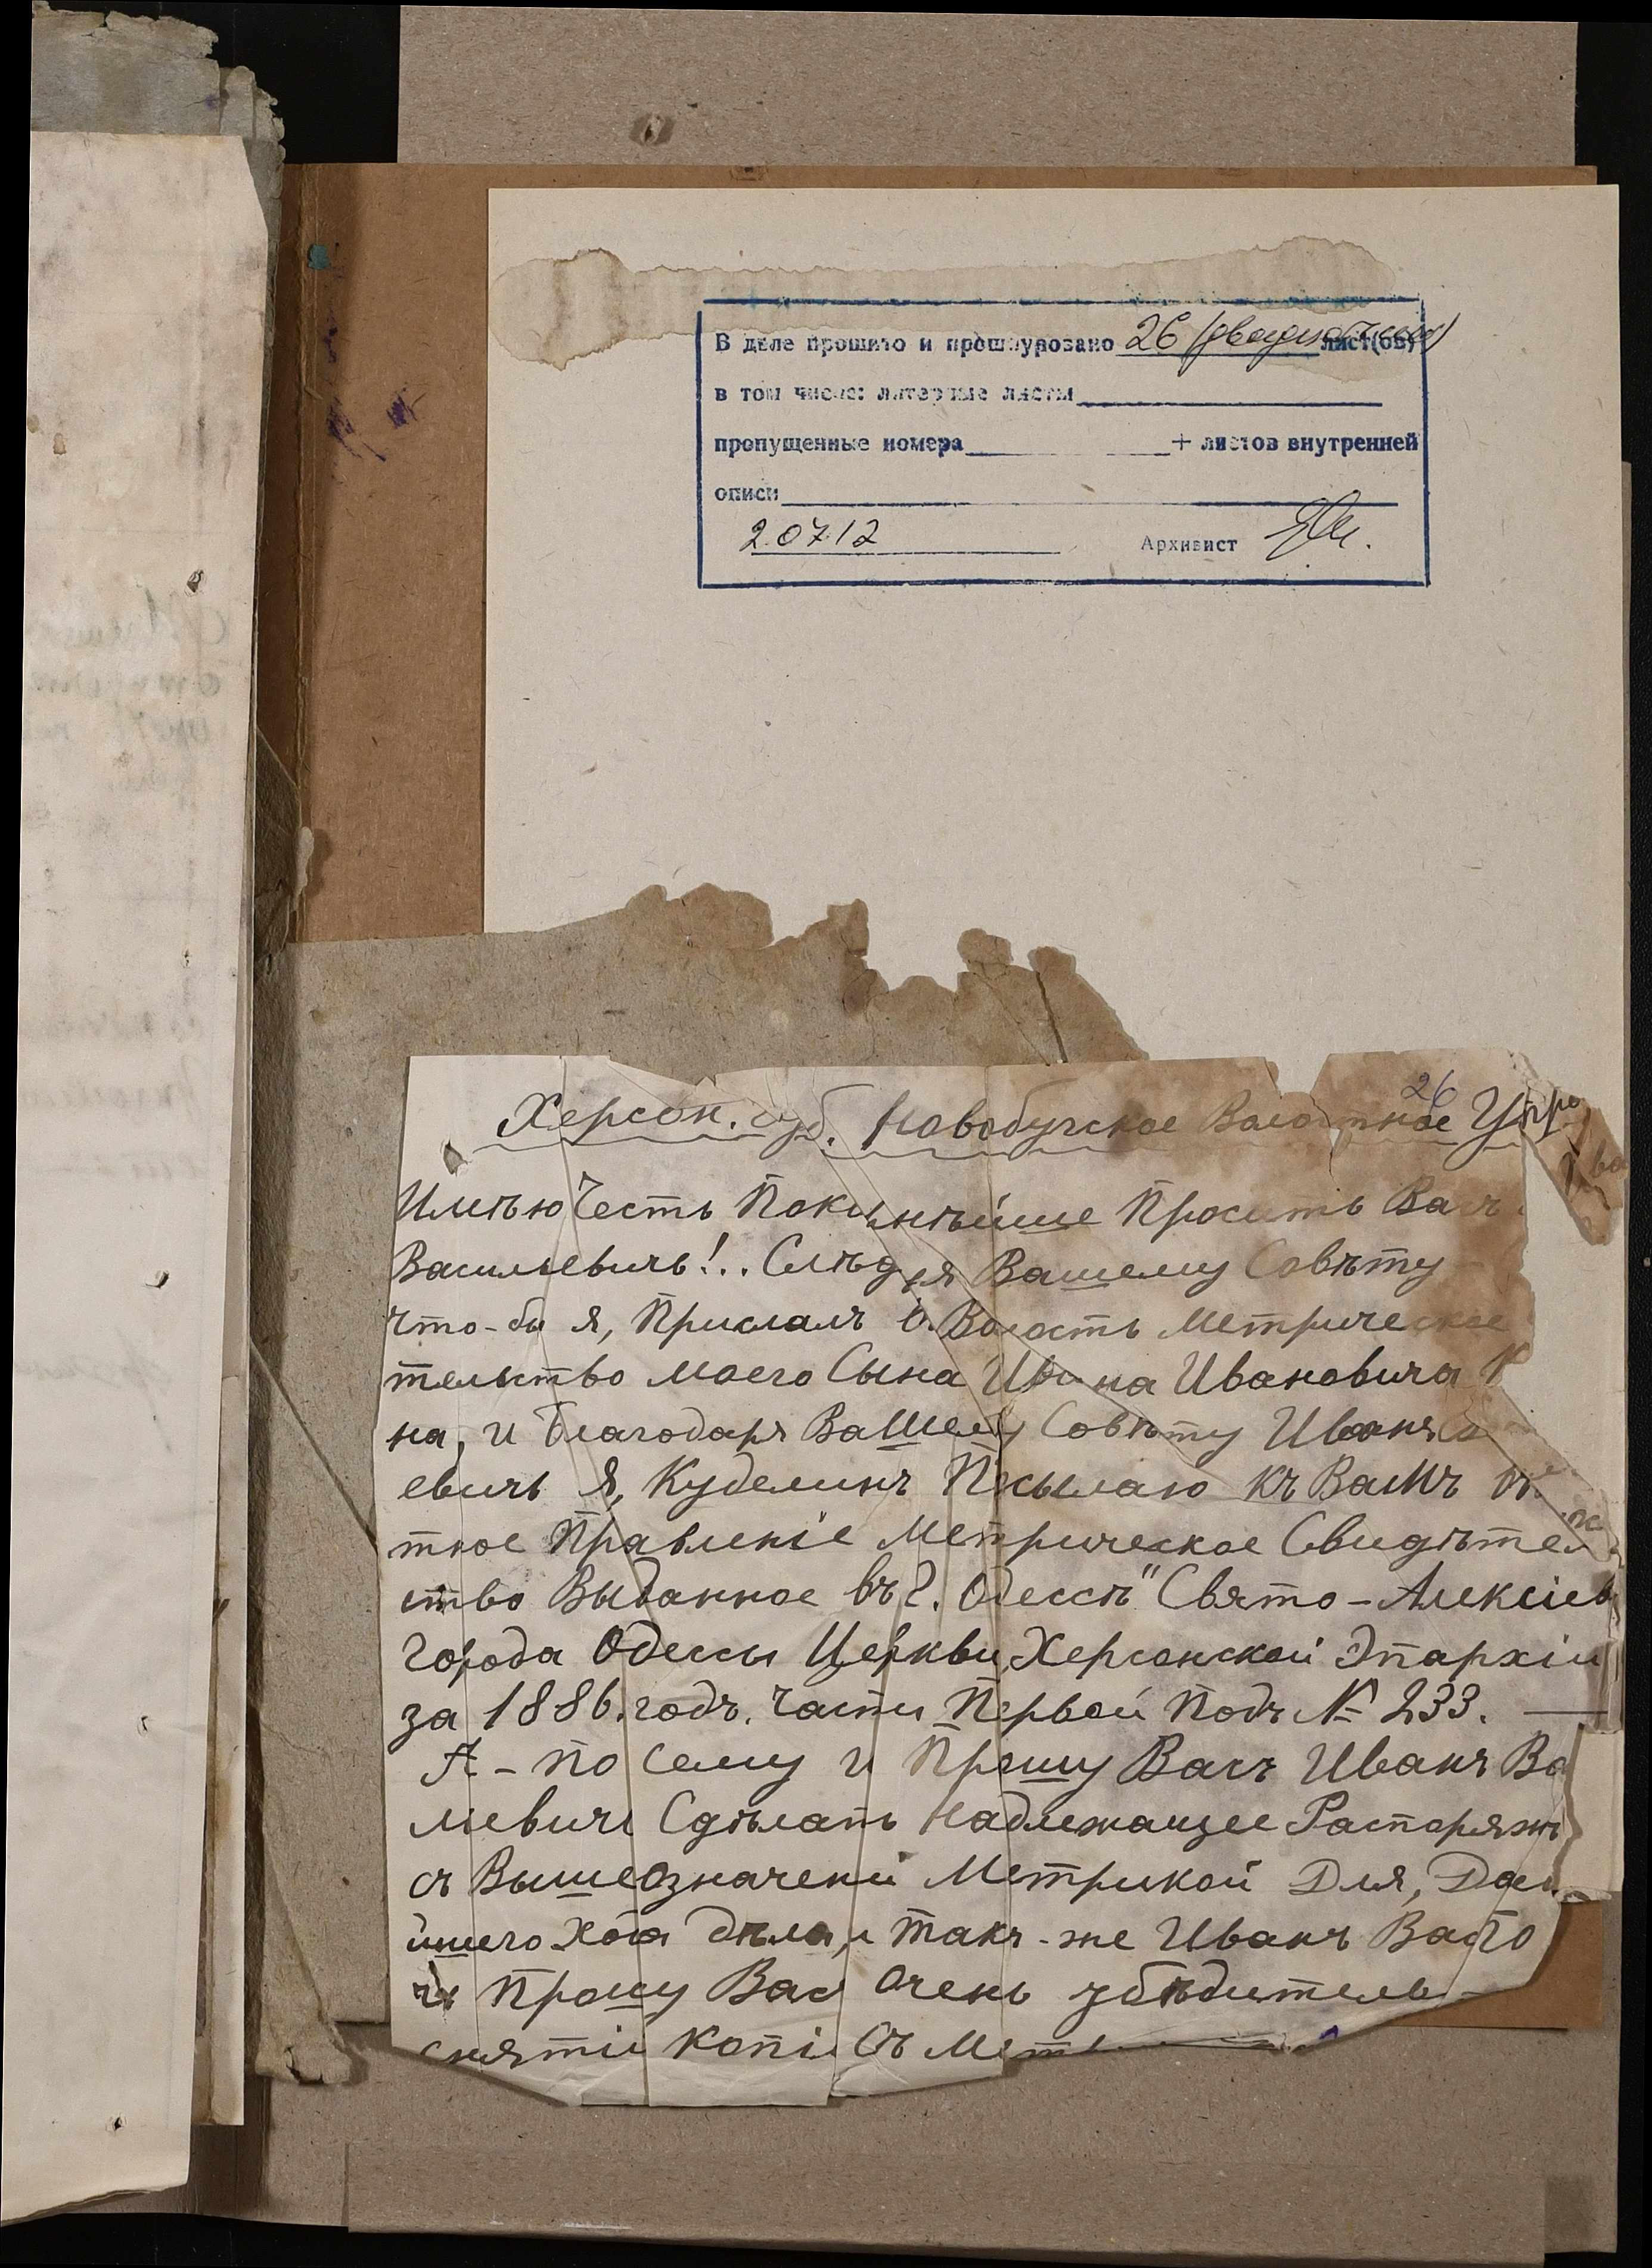 В деле прошито и прошнуровано 26 (двадцать шесть) лист(ов)
в том числе: литерные листы
пропущенные номера + листов внутренней
описи
20712 Архивист
26
Херсон. губ. Новобугское Волостное Упра
Имѣю Честь Покорнѣйше Просить Васъ
Васильевичъ!.. Слѣдуя Вашему Совѣту
что-бы я, Прислалъ в Волость Метрическое
тельство моего Сына Ивана Ивановича К
на, и Благодаря Вашему Совѣту Иванъ
евичъ Я, Куделинъ Посылаю къ Вамъ
тное Правленіе Метрическое Свидѣтел
ство Выданное въ г. Одессѣ" Свято-Алексіев
города Одессы Церкви, Херсонской Эпархіи
за 1886. годъ. части Первой Подъ № 233.
А - по сему и Прошу Васъ Иванъ Ва
льевичъ Сдѣлать Надлежащее Распоряжѣ
съ Вышеозначеной Метрикой Для, Дал
йшего Хода дѣла, и такъ-же Иванъ Ва
чъ Прошу Вас Очень убѣдитель-
снятіи Копіи Съ Мет